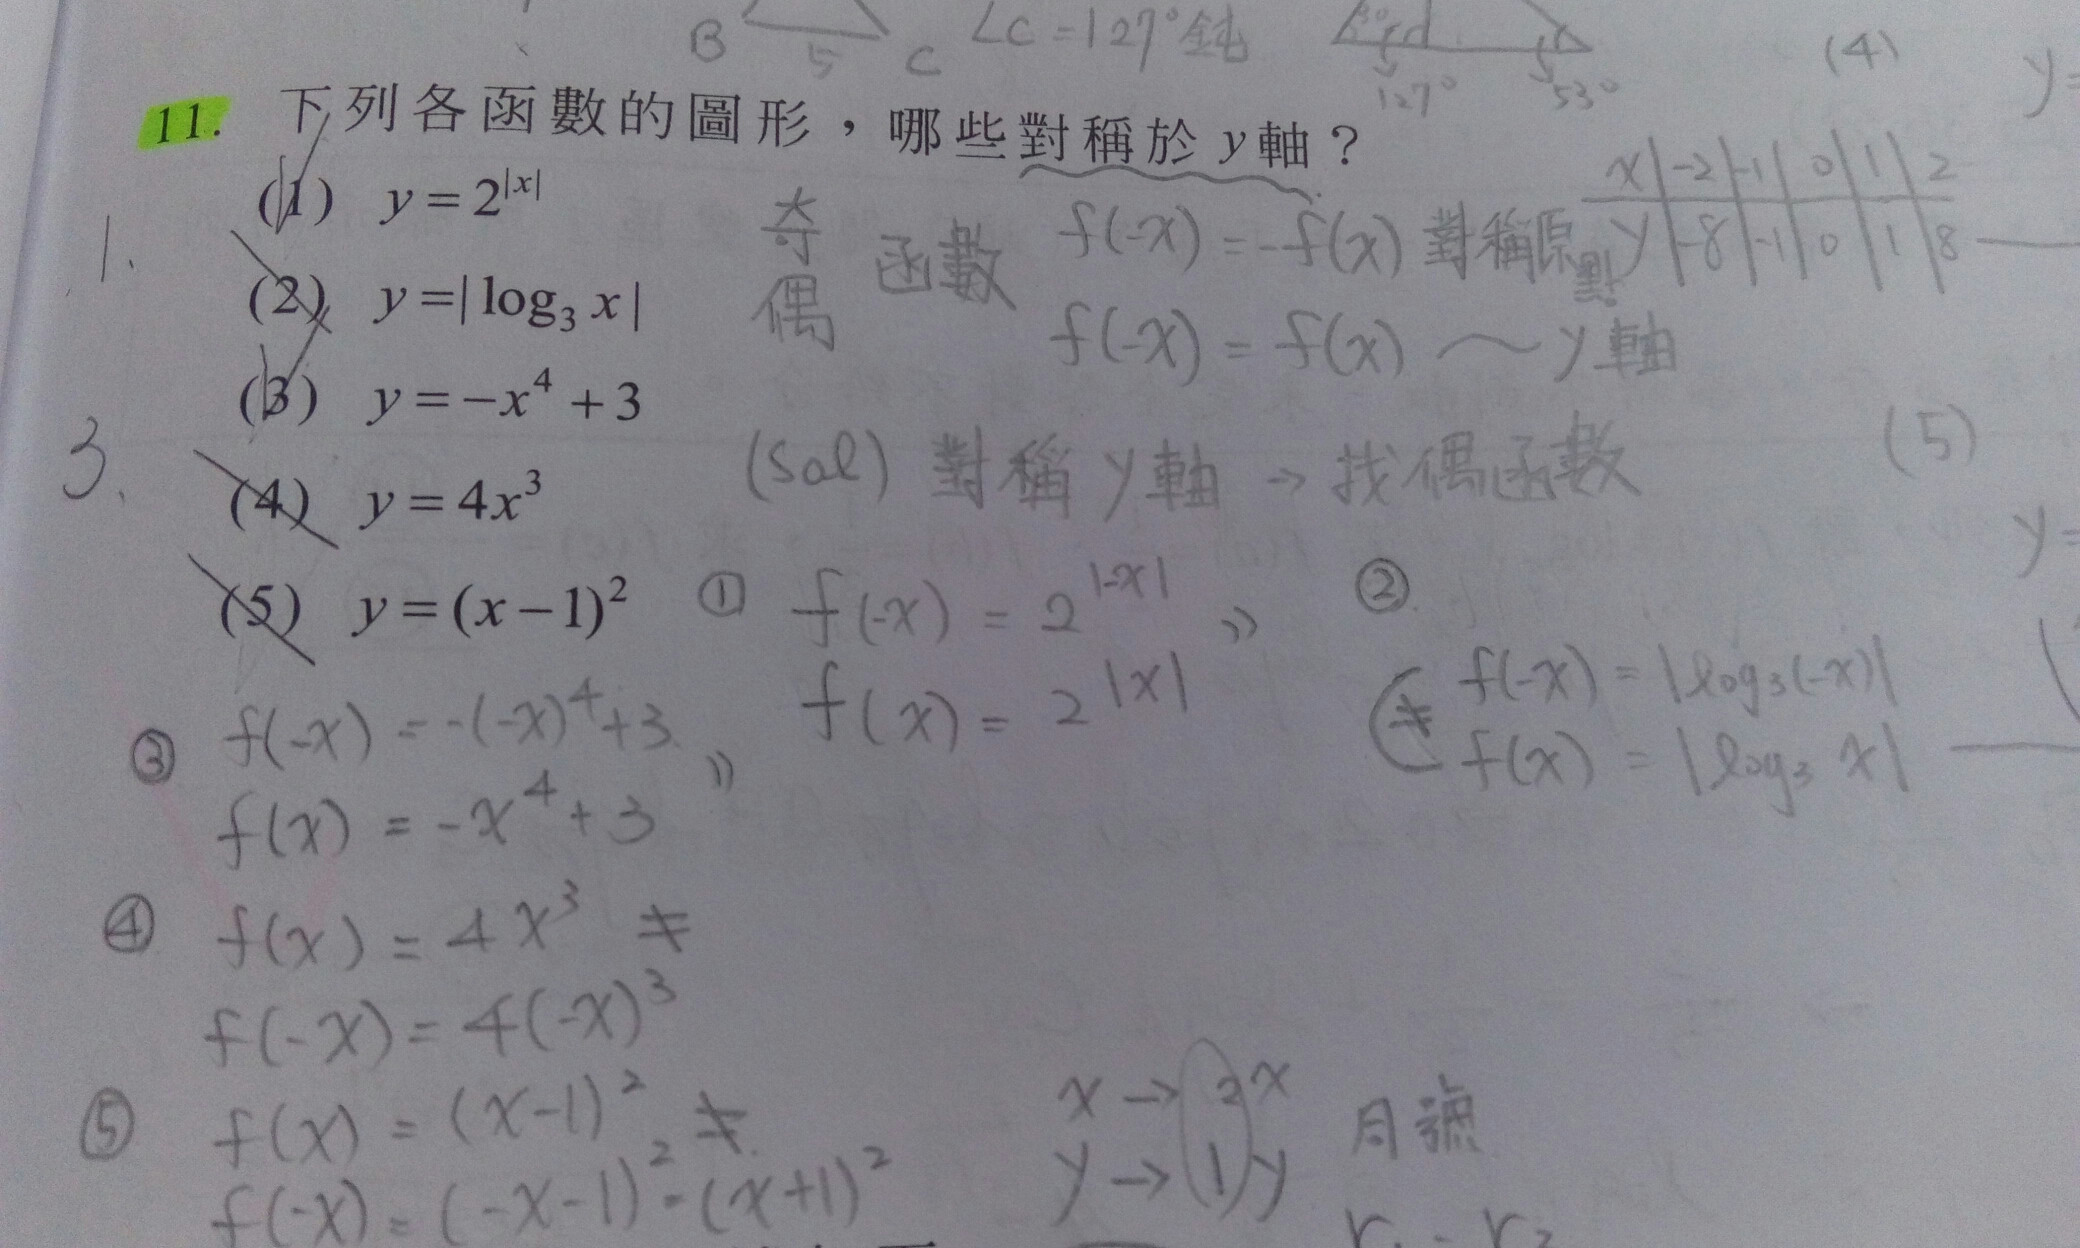 B 5 C ∠C=127°鈍 127° 53° (4) y=
11. 下列各函數的圖形，哪些對稱於 y 軸？
(1) y=2^|x|
x | -2 | -1 | 0 | 1 | 2
y | -8 | -1 | 0 | 1 | 8
1.
奇 函數 f(-x)=-f(x) 對稱原點
偶 f(-x)=f(x) ～ y 軸
(2) y=|log₃ x|
(3) y=-x⁴+3
3.
(Sol) 對稱 y 軸 → 找偶函數 (5)
(4) y=4x³
y=
(5) y=(x-1)²
① f(-x)=2^|-x| 〃
f(x)=2^|x|
②
≠ f(-x)=|log₃(-x)|
f(x)=|log₃ x|
③ f(-x)=-(-x)⁴+3 〃
f(x)=-x⁴+3
④ f(x)=4x³ ≠
f(-x)=4(-x)³
⑤ f(x)=(x-1)² ≠
f(-x)=(-x-1)²=(x+1)²
x → 2x
y → 1y
號
r₁ - r₂